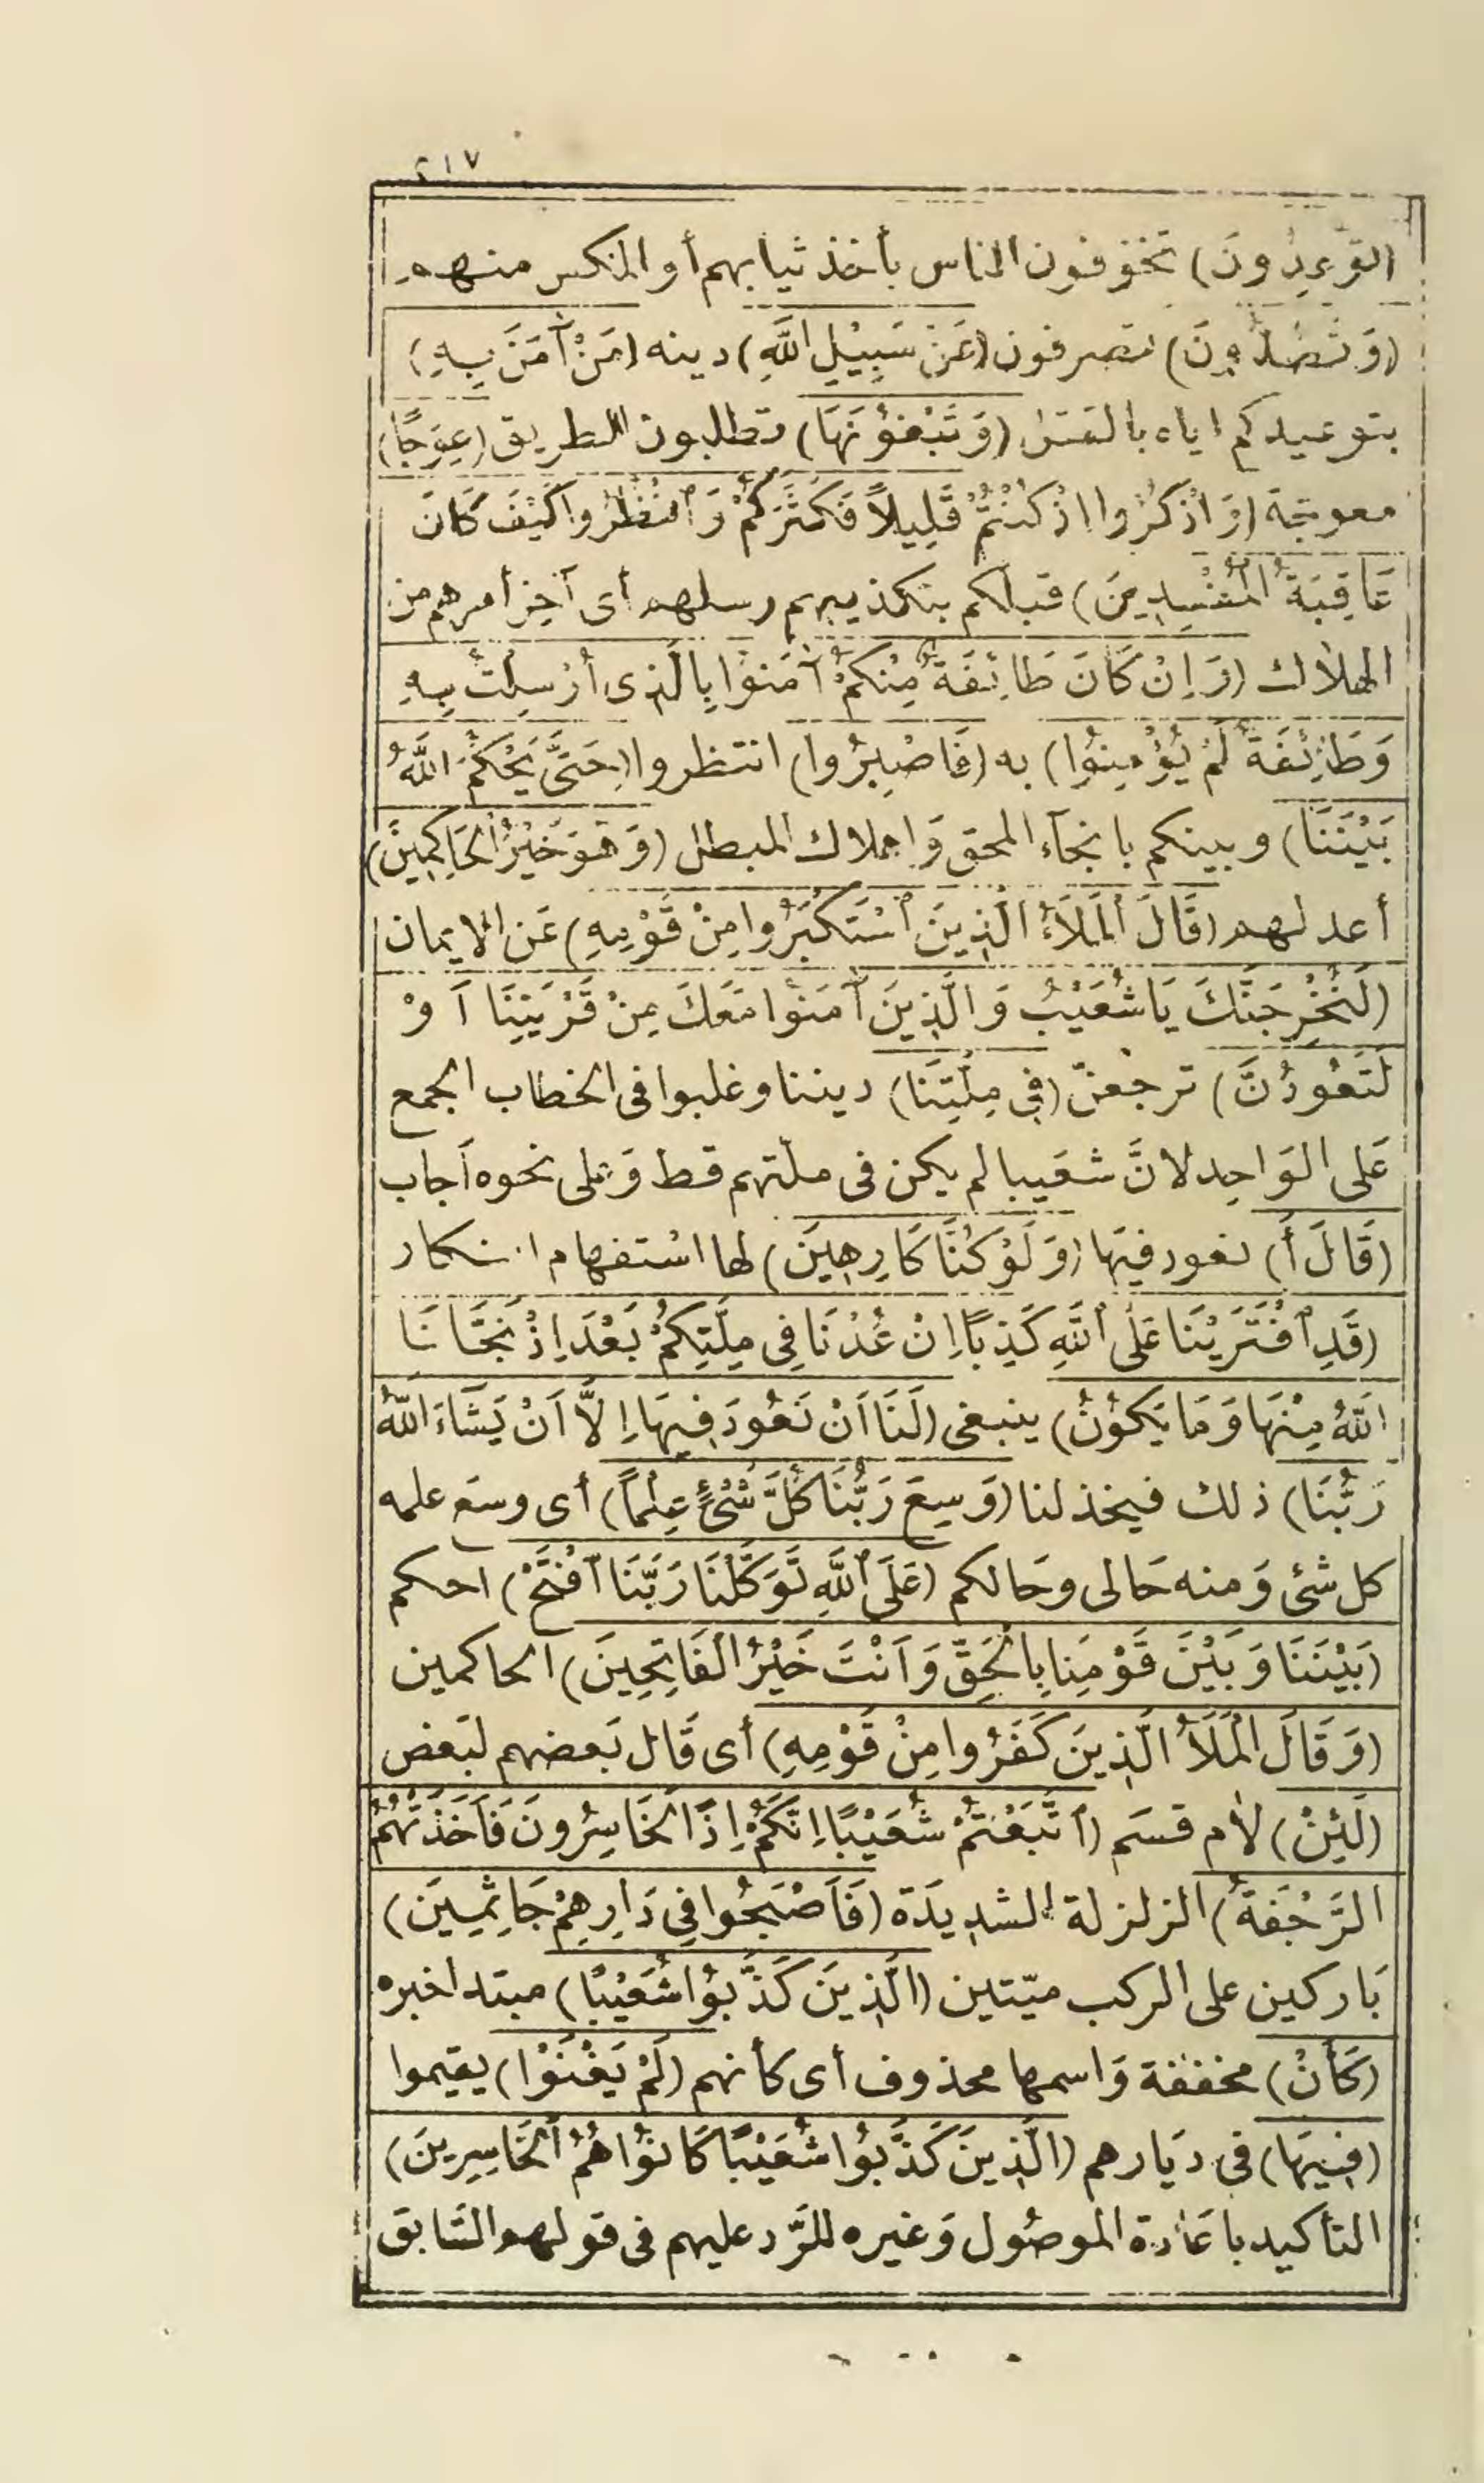 ٢١٧
(تُوعِدُونَ) تخوفون الناس بأخذ ثيابهم أو المكس منهم
(وَتَصُدُّونَ) تصرفون (عَنْ سَبِيْلِ اللَّهِ) دينه (مَنْ آمَنَ بِهِ)
بتوعيدكم اياه بالقتل (وَتَبْغُوْنَهَا) تطلبون الطريق (عِوَجًا)
معوجّة (وَاذْكُرُوا اذْكُنْتُمْ قَلِيلاً فَكَثَّرَكُمْ وَٱنْظُرُوا كَيْفَ كَانَ
عَاقِبَةُ الْمُفْسِدِينَ) قبلكم بتكذيبهم رسلهم أى آخر أمرهم من
الهلاك (وَاِنْ كَانَ طَائِفَةٌ مِنْكُمْ آمَنُوْا بِالَّذِى أُرْسِلْتُ بِهِ
وَطَائِفَةٌ لَمْ يُؤْمِنُوا) به (فَاصْبِرُوا) انتظروا (حَتَّى يَحْكُمَ اللَّهُ
بَيْنَنَا) وبينكم بانجآء المحق وَاهلاك المبطل (وَهُوَ خَيْرُ الْحَاكِمِينَ)
أعدلهم (قَالَ الْمَلَأُ الَّذِينَ ٱسْتَكْبَرُوا مِنْ قَوْمِهِ) عَن الايمان
(لَنُخْرِجَنَّكَ يَاشُعَيْبُ وَالَّذِينَ آمَنُوْا مَعَكَ مِنْ قَرْيَتِنَا اَوْ
لَتَعُودُنَّ) ترجعنّ (فِي مِلَّتِنَا) ديننا وغلبوا فى الخطاب الجمع
عَلى الوَاحِد لانَّ شعَيبا لم يكن فى ملّتهم قط وَعلى نحوه أجاب
(قَالَ أَ) نعود فيهَا (وَلَوْ كُنَّا كَارِهِينَ) لها اسْتفهام انكار
(قَدِ ٱفْتَرَيْنَا عَلَى ٱللَّهِ كَذِبًا اِنْ عُدْنَا فِى مِلَّتِكُمْ بَعْدَ اِذْ نَجَّانَا
اللَّهُ مِنْهَا وَمَا يَكُوْنُ) ينبغى (لَنَا اَنْ نَعُودَ فِيهَا اِلاَّ اَنْ يَشَاءَ اللَّهُ
رَبُّنَا) ذلك فيخذلنا (وَسِعَ رَبُّنَا كُلَّ شَيْئٍ عِلْماً) أى وسعَ علمه
كل شئ وَمنه حَالى وحَالكم (عَلَى ٱللَّهِ تَوَكَّلْنَا رَبَّنَا ٱفْتَحْ) احكم
(بَيْنَنَا وَبَيْنَ قَوْمِنَا بِالْحَقِّ وَاَنْتَ خَيْرُ الْفَاتِحِينَ) الحاكمين
(وَقَالَ الْمَلَأُ الَّذِينَ كَفَرُوا مِنْ قَوْمِهِ) أى قَال بَعضهم لبَعض
(لَئِنْ) لام قسَم (ٱتَّبَعْتُمْ شُعَيْبًا اِنَّكُمْ اِذًا لَخَاسِرُونَ فَاَخَذَتْهُمُ
الرَّجْفَةُ) الزلزلة الشديدَة (فَاَصْبَحُوا فِي دَارِهِمْ جَاثِمِيَن)
بَاركين على الركب ميّتين (الَّذِينَ كَذَّبُوْا شُعَيْبًا) مبتدا خبره
(كَأَنْ) مخففة وَاسمها محذوف أى كأنهم (لَمْ يَغْنَوْا) يقيموا
(فِيهَا) فى ديَارهم (الَّذِينَ كَذَّبُوا شُعَيْبًا كَانُوْا هُمُ الْخَاسِرِينَ)
التأكيد باعَادة الموصُول وَغيره للرَّد عليهم فى قولهم السَّابق